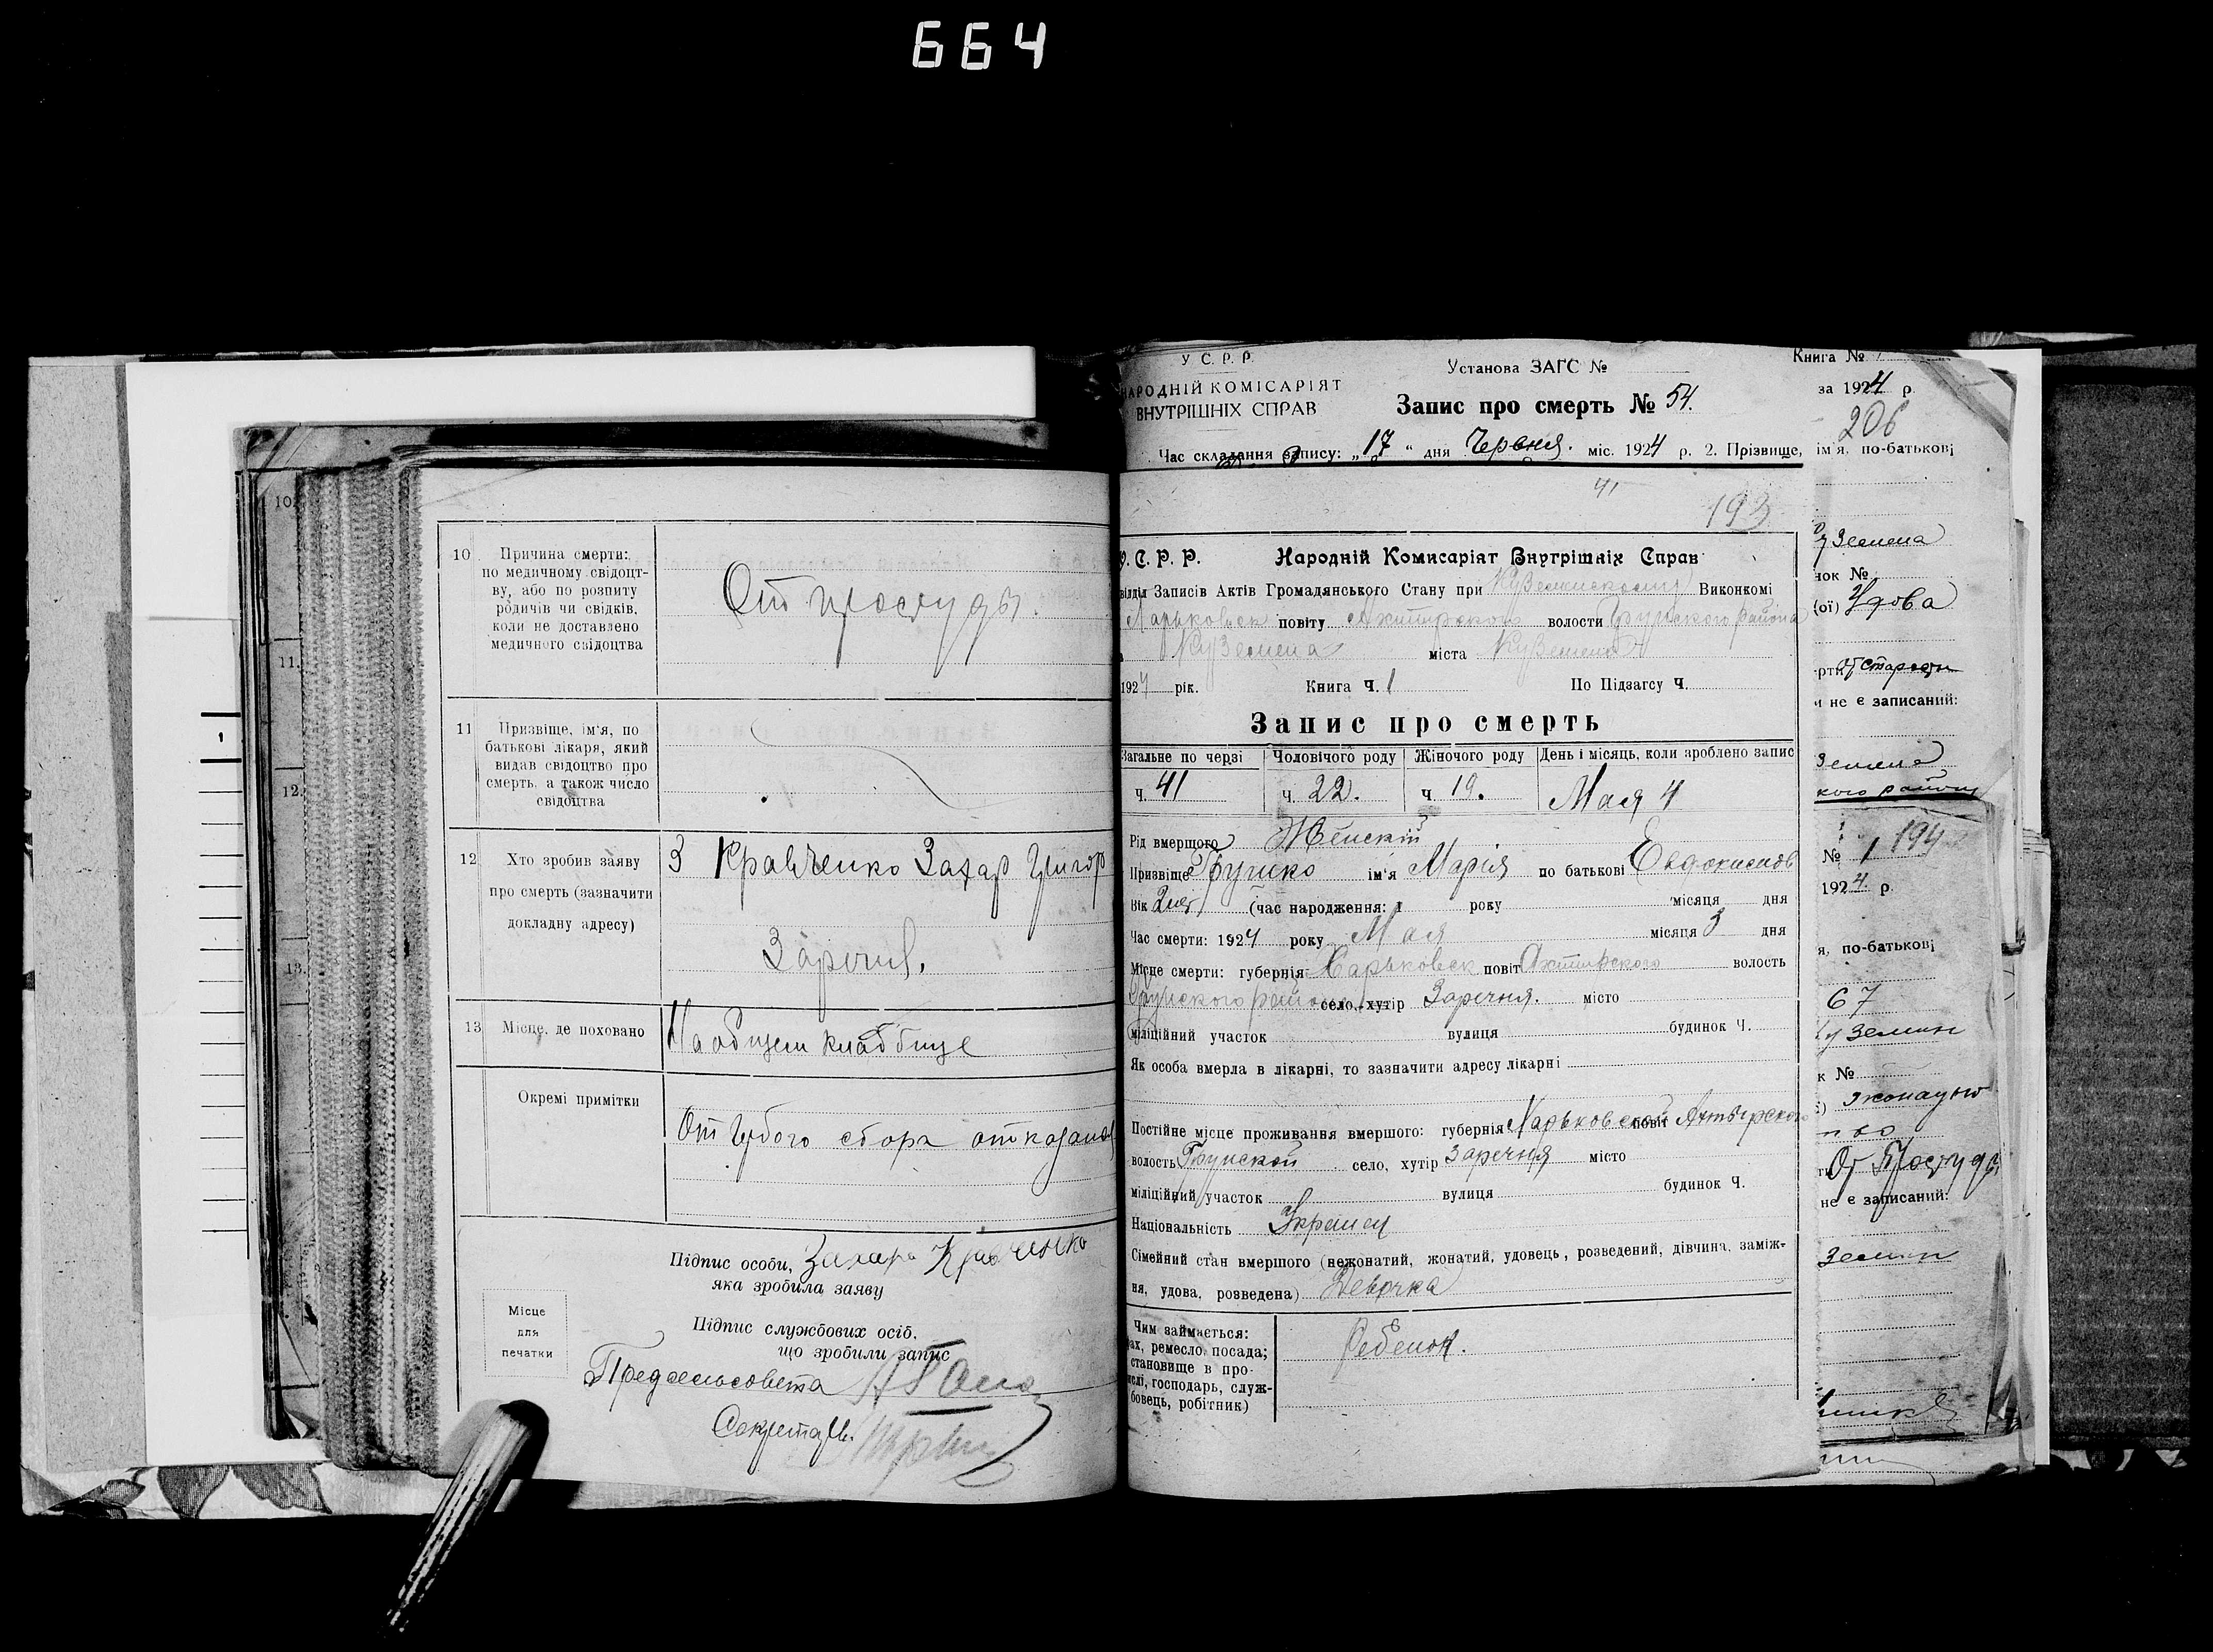 664
10
Причина смерти:
по медичному свідоцт-
ву, або по розпиту
родичів чи свідків,
коли не доставлено
медичного свідоцтва
От простуды.
11
Призвіще, ім'я, по
батькові лікаря, який
видав свідоцтво про
смерть, а також число
свідоцтва
12
Хто зробив заяву
про смерть (зазначити
докладну адресу)
З Кравченко Захар Григор
Заречня.
13
Місце, де поховано
На общем кладбище
Окремі примітки
От гербого сбора отказано
Підпис особи,
яка зробила заяву
Захара Кравченко
Місце
для
печатки
Підпис службових осіб,
що зробили запис
Предсельсовета
Секретарь.
10.
11.
12.
13.
1
У С. Р. Р.
НАРОДНІЙ КОМІСАРІЯТ
ВНУТРІШНІХ СПРАВ
Установа ЗАГС №
Запис про смерть № 54.
Книга №
за 1924 р.
206
Час складання запису: „17 “ дня Червня. міс. 1924 р. 2. Прізвище, ім'я, по-батькові
41
193
У. С. Р. Р. Народній Комисаріят Внутрішніх Справ
відділ Записів Актів Громадянського Стану при Куземинском Виконкомі
Харьковск повіту Ахтирского волости Грунского района
Куземена міста Куземена
1924 рік. Книга Ч. 1 По Підзагсу Ч.
Запис про смерть
Загальне по черзі Чоловічого роду Жіночого роду День і місяць, коли зроблено запис
ч. 41 ч. 22. ч. 19. Мая 4
Рід вмершого Женский
Призвіще Грунско ім'я Марія по батькові Евдокимов
Вік 2 лет (час народження: 1 року місяця дня
Час смерти: 1924 року Мая місяця 3 дня
Місце смерти: губернія Харьковск повіт Ахтирского волость
Грунского района село, хутір Заречня. місто
міліційний участок вулиця будинок Ч.
Як особа вмерла в лікарні, то зазначити адресу лікарні
Постійне місце проживання вмершого: губернія Харьковской повіт Ахтырского
волость Грунской село, хутір Заречня місто
міліційний участок вулиця будинок Ч.
Національність Украиец
Сімейний стан вмершого (нежонатий, жонатий, удовець, розведений, дівчина, заміж-
ня, удова, розведена) Девочка
Чим займається:
ах, ремесло, посада;
становище в про-
ислі, господарь, служ-
бовець, робітник)
Ребенок.
уземена
нок №
(ої) Удова
рти От старости
и не є записаний:
земена
кого району
№ 1
194
1924. р.
я, по-батькові
67
узємин
к №
) жонатую
ти От Простуды
не є записаний:
земин